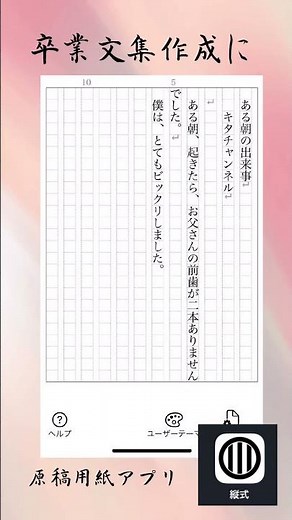 卒業文集作成に
10
5
ある朝の出来事
キタチャンネル
ある朝、起きたら、お父さんの前歯が二本ありません
でした。
僕は、とてもビックリしました。
ヘルプ
ユーザーテーマ
原稿用紙アプリ
縦式